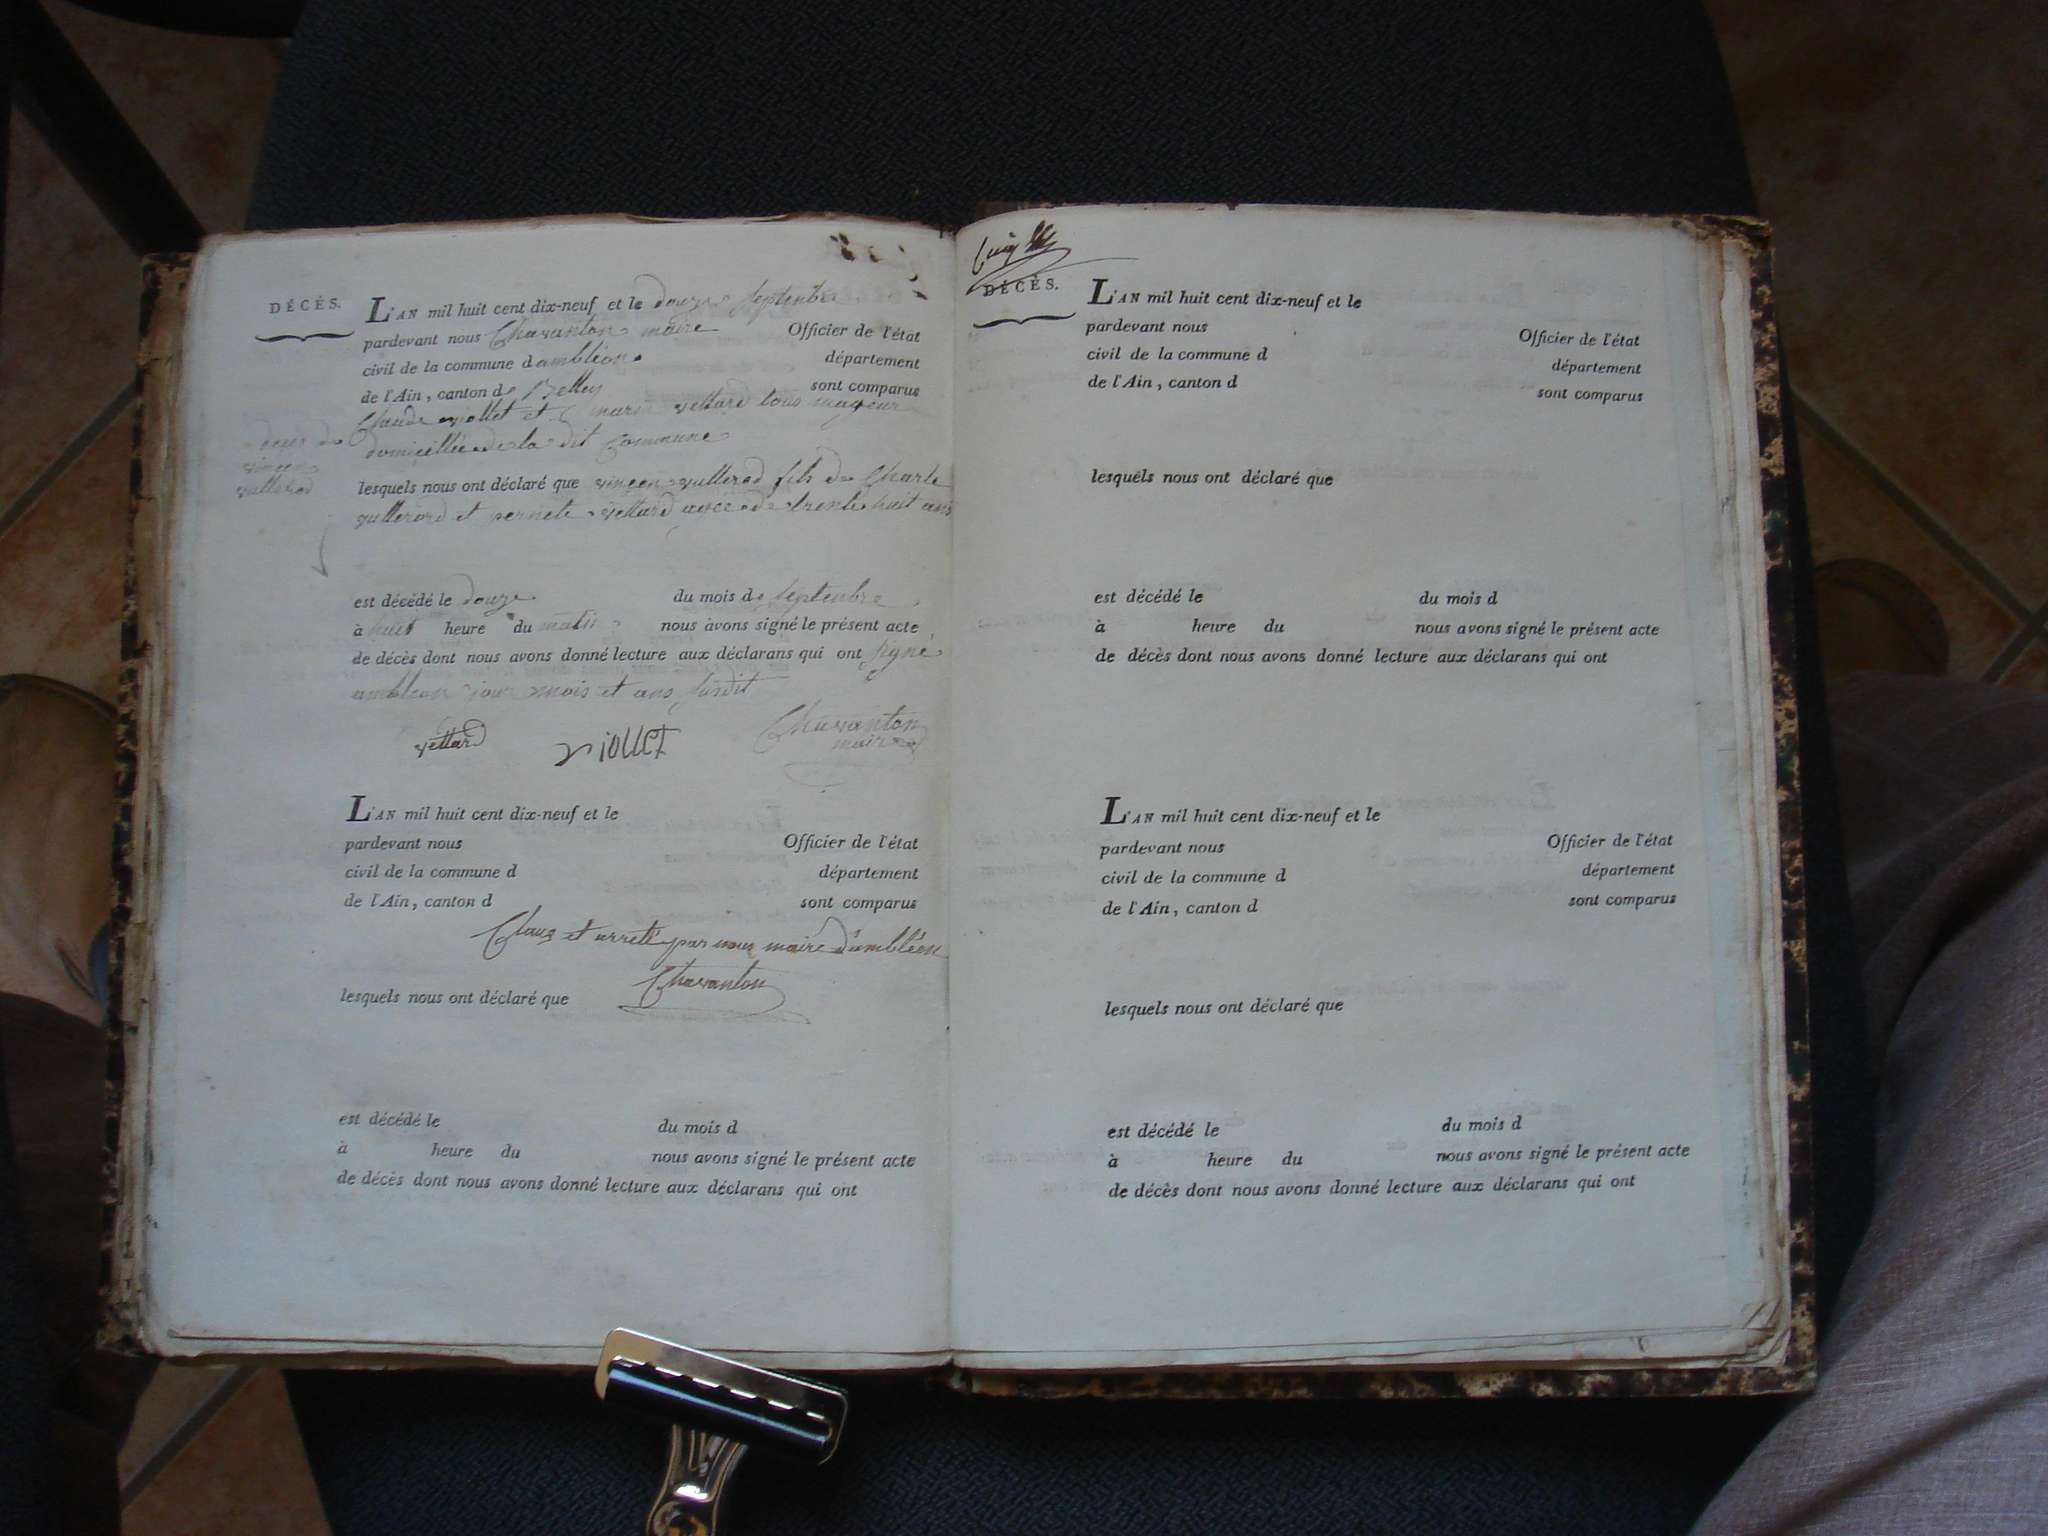 DÉCÈS.
L'AN mil huit cent dix-neuf et le douze septembre
pardevant nous Chavanton maire Officier de l'état
civil de la commune d ambléon département
de l'Ain, canton de Belley sont comparus
Claude viollet et marin vettard tous mageur
domicillée de la dit Commune
deces de
vincen
vullerod
lesquels nous ont déclaré que vincen vullerod fils de Charle
vullerord et pernete vettard agée de trente huit ans
est décédé le douze du mois de septenbre
à huit heure du matin nous avons signé le présent acte
de décès dont nous avons donné lecture aux déclarans qui ont signé
ambleon jour mois et ans susdit
vettard violleT Chavanton
maire
L'AN mil huit cent dix-neuf et le
pardevant nous Officier de l'état
civil de la commune d département
de l'Ain, canton d sont comparus
Claus et arreté par nous maire d'ambléon
Chavanton
lesquels nous ont déclaré que
est décédé le du mois d
à heure du nous avons signé le présent acte
de décès dont nous avons donné lecture aux déclarans qui ont
DÉCÈS.
L'AN mil huit cent dix-neuf et le
pardevant nous Officier de l'état
civil de la commune d département
de l'Ain, canton d sont comparus
lesquels nous ont déclaré que
est décédé le du mois d
à heure du nous avons signé le présent acte
de décès dont nous avons donné lecture aux déclarans qui ont
L'AN mil huit cent dix-neuf et le
pardevant nous Officier de l'état
civil de la commune d département
de l'Ain, canton d sont comparus
lesquels nous ont déclaré que
est décédé le du mois d
à heure du nous avons signé le présent acte
de décès dont nous avons donné lecture aux déclarans qui ont